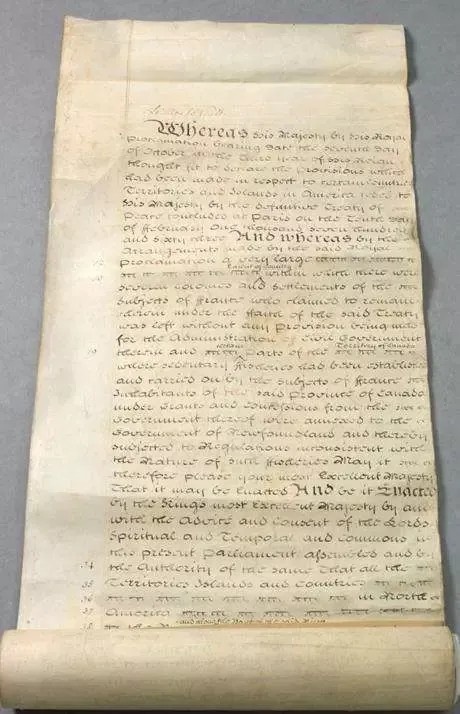 Whereas His Majesty by His Royal
Proclamation bearing Date the seventh Day
of October in the Third Year of His Reign
thought fit to declare the Provisions which
had been made in respect to certain Countries
Territories and Islands in America ceded to
His Majesty by the definitive Treaty of
Peace concluded at Paris on the Tenth Day
of February One thousand seven hundred
and sixty three And whereas by the
Arrangements made by the said Royal
Proclamation a very large
Extent of Country
within which there were
several Colonies and Settlements of the
Subjects of France who claimed to remain
therein under the Faith of the said Treaty
was left without any Provision being made
for the Administration of Civil Government
certain Territory of Canada
29 therein and Parts of the
where sedentary Fisheries had been established
and carried on by the Subjects of France
Inhabitants of the said Province of Canada
under Grants and Concessions from the
Government thereof were annexed to the
Government of Newfoundland and thereby
subjected to Regulations inconsistent with
the Nature of such Fisheries May it
therefore please your most Excellent Majesty
That it may be Enacted And be it Enacted
by the Kings most Excellent Majesty by and
with the Advice and Consent of the Lords
Spiritual and Temporal and Commons in
this present Parliament assembled and by
34 the Authority of the same That all the
35 Territories Islands and Countries
36 in North
37 America
38